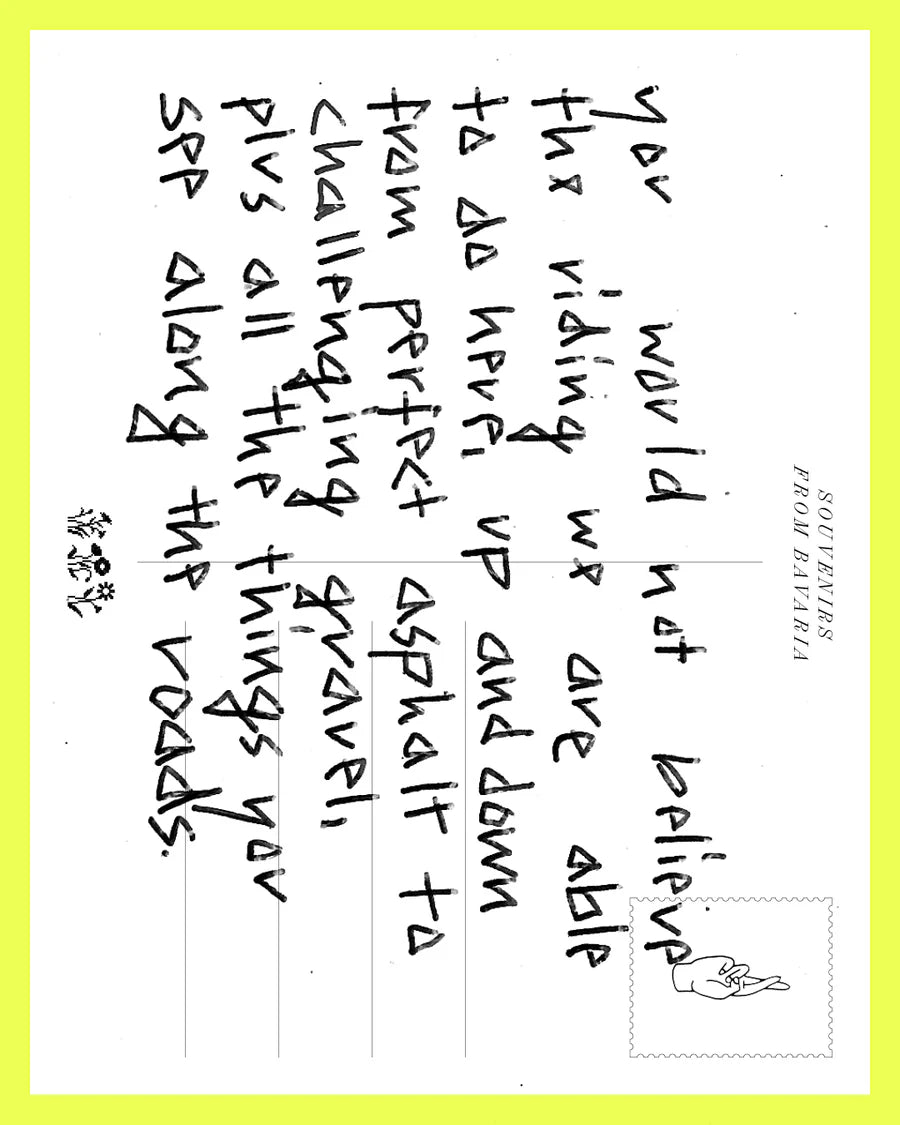 SOUVENIRS
FROM BAVARIA
you would not believe
the riding we are able
to do here, up and down
from perfect asphalt to
challenging gravel,
plus all the things you
see along the roads.